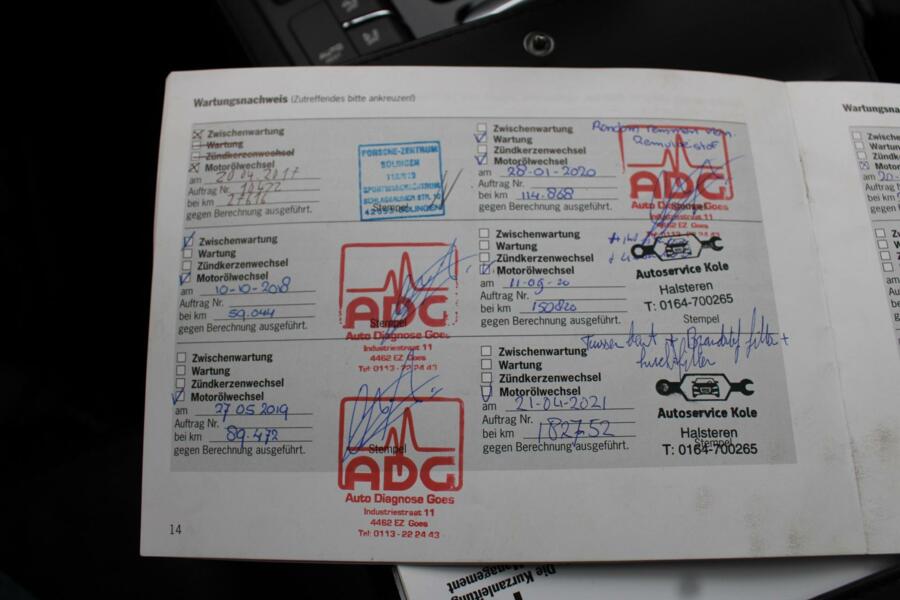 Wartungsnachweis (Zutreffendes bitte ankreuzen!)
Zwischenwartung
Wartung
Zündkerzenwechsel
Motorölwechsel
am 20.04.2017
Auftrag Nr.
bei km
gegen Berechnung ausgeführt.
PORSCHE-ZENTRUM
SOLINGEN
42653 SOLINGEN
Stempel
Zwischenwartung
Wartung
Zündkerzenwechsel
Motorölwechsel
am 10-10-2018
Auftrag Nr.
bei km 59.044
gegen Berechnung ausgeführt.
ADG
Stempel
Auto Diagnose Goes
Industriestraat 11
4462 EZ Goes
Tel: 0113-22 24 43
Zwischenwartung
Wartung
Zündkerzenwechsel
Motorölwechsel
am 27 05 2019
Auftrag Nr.
bei km 89.472
gegen Berechnung ausgeführt.
Stempel
ADG
Auto Diagnose Goes
Industriestraat 11
4462 EZ Goes
Tel: 0113-22 24 43
14
Zwischenwartung
Wartung
Zündkerzenwechsel
Motorölwechsel
am 28-01-2020
Auftrag Nr.
bei km 114.868
gegen Berechnung ausgeführt.
Rondom remmen
ADG
Auto Diagnose Goes
Industriestraat 11
Zwischenwartung
Wartung
Zündkerzenwechsel
Motorölwechsel
am 11-09-20
Auftrag Nr.
bei km 150820
gegen Berechnung ausgeführt.
Autoservice Kole
Halsteren
T: 0164-700265
Stempel
Zwischenwartung
Wartung
Zündkerzenwechsel
Motorölwechsel
am 21-04-2021
Auftrag Nr.
bei km 182752
gegen Berechnung ausgeführt.
Tussen beurt + Brandstof filter +
luchtfilter
Autoservice Kole
Halsteren
Stempel
T: 0164-700265
Wartungsna
Zwischen
Wartung
Zündker
Motoröl
am
Auftrag
bei km
gegen B
Die Kurzanleitung
Management